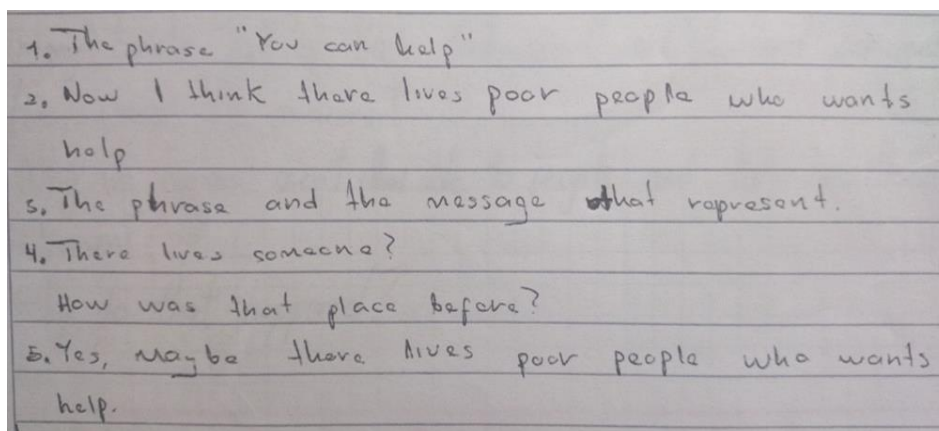 1. The phrase "You can help"
2. Now I think there lives poor people who wants
help
3. The phrase and the message that represent.
4. There lives someone?
How was that place before?
5. Yes, maybe there lives poor people who wants
help.